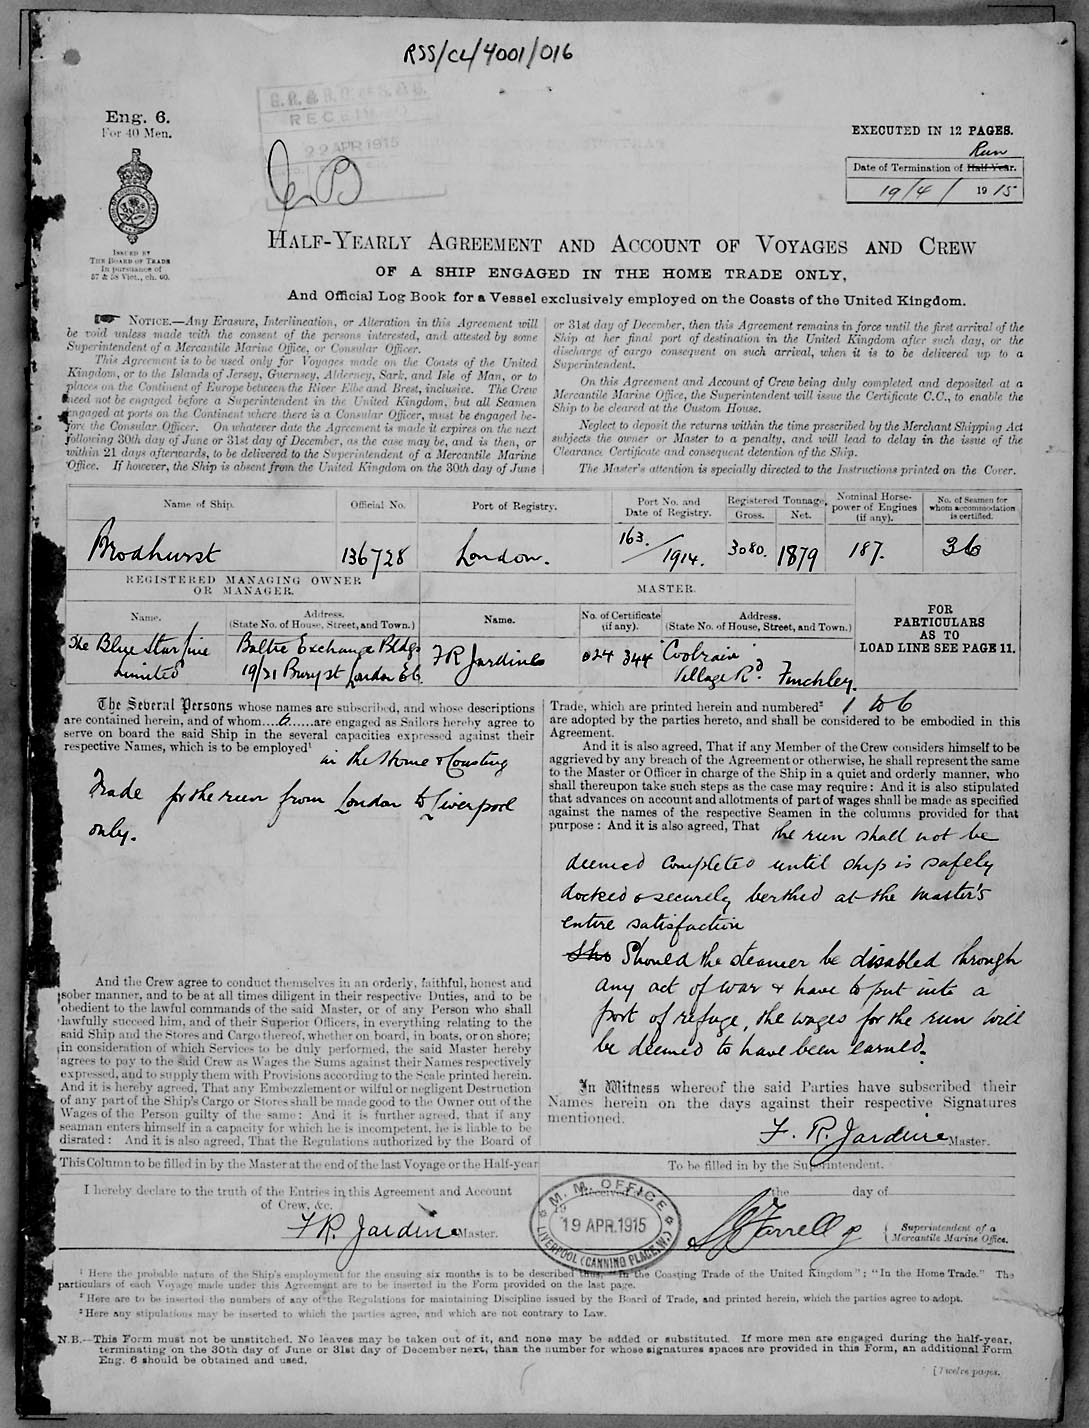 RSS/CL/4001/016
Eng. 6.
For 40 Men.
RECEIVED
22 APR 1915
EXECUTED IN 12 PAGES.
Run
Date of Termination of Half-Year.
19/4/ 1915
ISSUED BY
THE BOARD OF TRADE
In pursuance of
57 & 58 Vict., ch. 60.
HALF-YEARLY AGREEMENT AND ACCOUNT OF VOYAGES AND CREW
OF A SHIP ENGAGED IN THE HOME TRADE ONLY,
And Official Log Book for a Vessel exclusively employed on the Coasts of the United Kingdom.
NOTICE.—Any Erasure, Interlineation, or Alteration in this Agreement will
be void unless made with the consent of the persons interested, and attested by some
Superintendent of a Mercantile Marine Office, or Consular Officer.
This Agreement is to be used only for Voyages made on the Coasts of the United
Kingdom, or to the Islands of Jersey, Guernsey, Alderney, Sark, and Isle of Man, or to
places on the Continent of Europe between the River Elbe and Brest, inclusive. The Crew
need not be engaged before a Superintendent in the United Kingdom, but all Seamen
engaged at ports on the Continent where there is a Consular Officer, must be engaged be-
fore the Consular Officer. On whatever date the Agreement is made it expires on the next
following 30th day of June or 31st day of December, as the case may be, and is then, or
within 21 days afterwards, to be delivered to the Superintendent of a Mercantile Marine
Office. If however, the Ship is absent from the United Kingdom on the 30th day of June
or 31st day of December, then this Agreement remains in force until the first arrival of the
Ship at her final port of destination in the United Kingdom after such day, or the
discharge of cargo consequent on such arrival, when it is to be delivered up to a
Superintendent.
On this Agreement and Account of Crew being duly completed and deposited at a
Mercantile Marine Office, the Superintendent will issue the Certificate C.C., to enable the
Ship to be cleared at the Custom House.
Neglect to deposit the returns within the time prescribed by the Merchant Shipping Act
subjects the owner or Master to a penalty, and will lead to delay in the issue of the
Clearance Certificate and consequent detention of the Ship.
The Master's attention is specially directed to the Instructions printed on the Cover.
Name of Ship. Official No. Port of Registry. Port No. and Date of Registry. Registered Tonnage. Gross. Net. Nominal Horse-power of Engines (if any). No. of Seamen for whom accommodation is certified.
Brodhurst 136728 London. 163./1914. 3080. 1879 187. 36
REGISTERED MANAGING OWNER
OR MANAGER.
MASTER.
Name. Address. (State No. of House, Street, and Town.) Name. No. of Certificate (if any). Address. (State No. of House, Street, and Town.)
FOR
PARTICULARS
AS TO
LOAD LINE SEE PAGE 11.
The Blue Star Line Baltic Exchange Bldgs F R Jardine 024 344 "Coolrain"
Limited 19/21 Bury St London E C. Village Rd. Finchley.
The Several Persons whose names are subscribed, and whose descriptions
are contained herein, and of whom....6......are engaged as Sailors hereby agree to
serve on board the said Ship in the several capacities expressed against their
respective Names, which is to be employed¹
in the Home & Coasting
Trade for the run from London to Liverpool
only.
And the Crew agree to conduct themselves in an orderly, faithful, honest and
sober manner, and to be at all times diligent in their respective Duties, and to be
obedient to the lawful commands of the said Master, or of any Person who shall
lawfully succeed him, and of their Superior Officers, in everything relating to the
said Ship and the Stores and Cargo thereof, whether on board, in boats, or on shore;
in consideration of which Services to be duly performed, the said Master hereby
agrees to pay to the said Crew as Wages the Sums against their Names respectively
expressed, and to supply them with Provisions according to the Scale printed herein.
And it is hereby agreed, That any Embezzlement or wilful or negligent Destruction
of any part of the Ship's Cargo or Stores shall be made good to the Owner out of the
Wages of the Person guilty of the same: And it is further agreed, that if any
seaman enters himself in a capacity for which he is incompetent, he is liable to be
disrated: And it is also agreed, That the Regulations authorized by the Board of
Trade, which are printed herein and numbered² 1 to 6
are adopted by the parties hereto, and shall be considered to be embodied in this
Agreement.
And it is also agreed, That if any Member of the Crew considers himself to be
aggrieved by any breach of the Agreement or otherwise, he shall represent the same
to the Master or Officer in charge of the Ship in a quiet and orderly manner, who
shall thereupon take such steps as the case may require: And it is also stipulated
that advances on account and allotments of part of wages shall be made as specified
against the names of the respective Seamen in the columns provided for that
purpose: And it is also agreed, That the run shall not be
deemed completed until ship is safely
docked & securely berthed at the Master's
entire satisfaction
Sho Should the steamer be disabled through
any act of war & have to put into a
port of refuge, the wages for the run will
be deemed to have been earned.
In Witness whereof the said Parties have subscribed their
Names herein on the days against their respective Signatures
mentioned.
F. R. Jardine Master.
This Column to be filled in by the Master at the end of the last Voyage or the Half-year
To be filled in by the Superintendent.
I hereby declare to the truth of the Entries in this Agreement and Account
of Crew, &c.
F R. Jardine Master.
Received the day of
M. M. OFFICE
19 APR.1915
LIVERPOOL (CANNING PLACE, W.)
Farrell
Superintendent of a
Mercantile Marine Office.
¹ Here the probable nature of the Ship's employment for the ensuing six months is to be described thus, "In the Coasting Trade of the United Kingdom"; "In the Home Trade." The
particulars of each Voyage made under this Agreement are to be inserted in the Form provided on the last page.
² Here are to be inserted the numbers of any of the Regulations for maintaining Discipline issued by the Board of Trade, and printed herein, which the parties agree to adopt.
³ Here any stipulations may be inserted to which the parties agree, and which are not contrary to Law.
N.B.—This Form must not be unstitched. No leaves may be taken out of it, and none may be added or substituted. If more men are engaged during the half-year,
terminating on the 30th day of June or 31st day of December next, than the number for whose signatures spaces are provided in this Form, an additional Form
Eng. 6 should be obtained and used.
[Twelve pages.